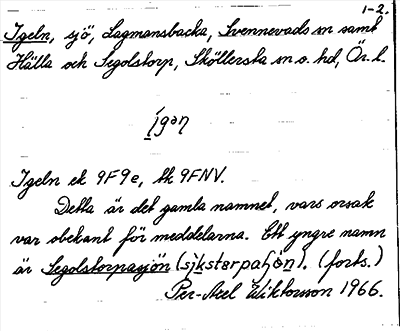 1-2.
Igeln, sjö, Lagmansbacka, Svennevads sn samt
Hälla och Segolstorp, Sköllersta sn o. hd, Ör. l.
ígən
Igeln ek 9F9e, tk 9FNV.
Detta är det gamla namnet, vars orsak
var obekant för meddelarna. Ett yngre namn
är Segolstorpasjön (forts.)
Per-Axel Wiktorsson 1966.